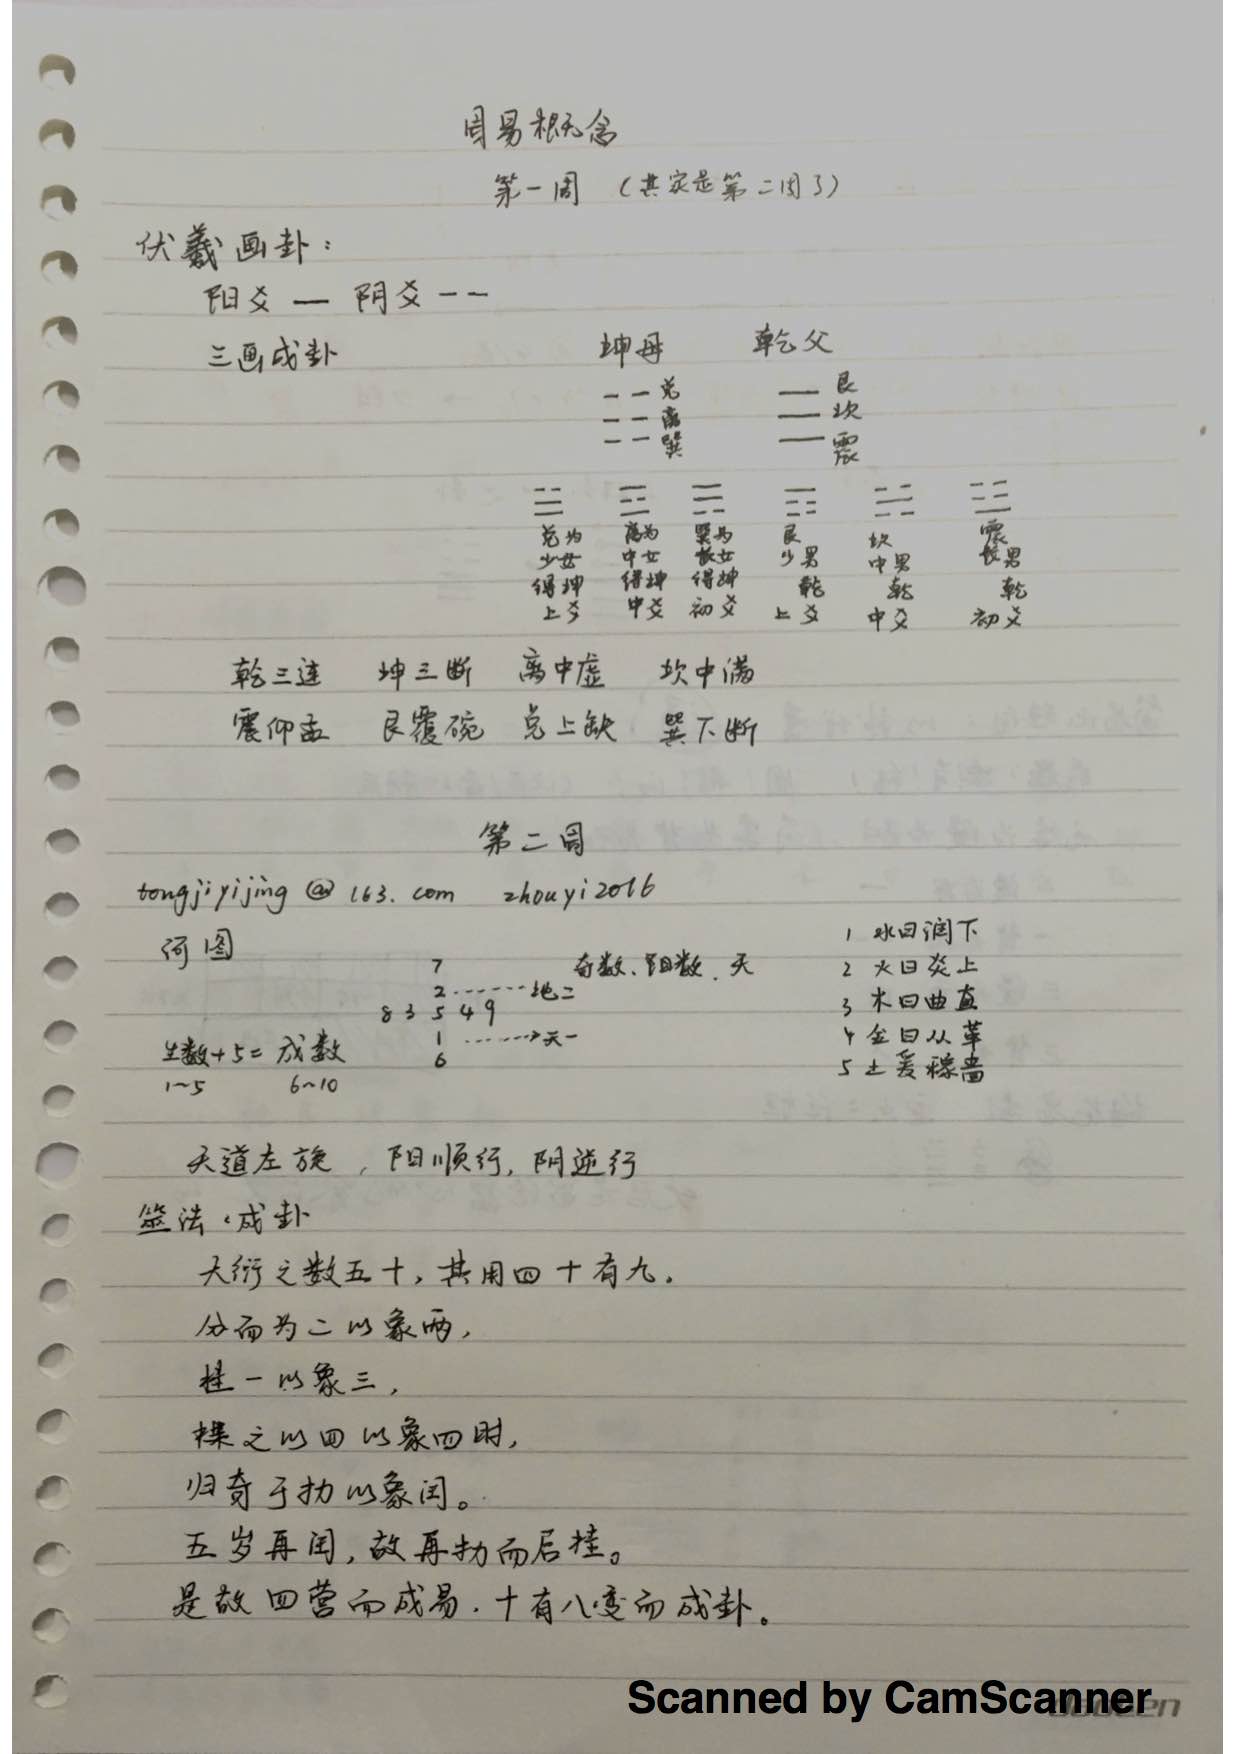 周易概念
第一周 (其实是第二周了)
伏羲画卦:
阳爻 — 阴爻 --
三画成卦 坤母 乾父
-- 兑 — 艮
-- 离 — 坎
-- 巽 — 震
☱ ☲ ☴ ☶ ☵ ☳
兑为 离为 巽为 艮 坎 震
少女 中女 长女 少男 中男 长男
得坤 得坤 得坤 乾 乾 乾
上爻 中爻 初爻 上爻 中爻 初爻
乾三连 坤三断 离中虚 坎中满
震仰盂 艮覆碗 兑上缺 巽下断
第二周
tongjiyijing@163.com zhouyi2016
河图
7 奇数、阳数、天
2 ------ 地二
8 3 5 4 9
1 ------→天一
6
生数+5=成数
1~5 6~10
1 水曰润下
2 火曰炎上
3 木曰曲直
4 金曰从革
5 土爰稼啬
天道左旋,阳顺行,阴逆行
筮法、成卦
大衍之数五十,其用四十有九。
分而为二以象两,
挂一以象三,
揲之以四以象四时,
归奇于扐以象闰。
五岁再闰,故再扐而后挂。
是故四营而成易.十有八变而成卦。
Scanned by CamScanner